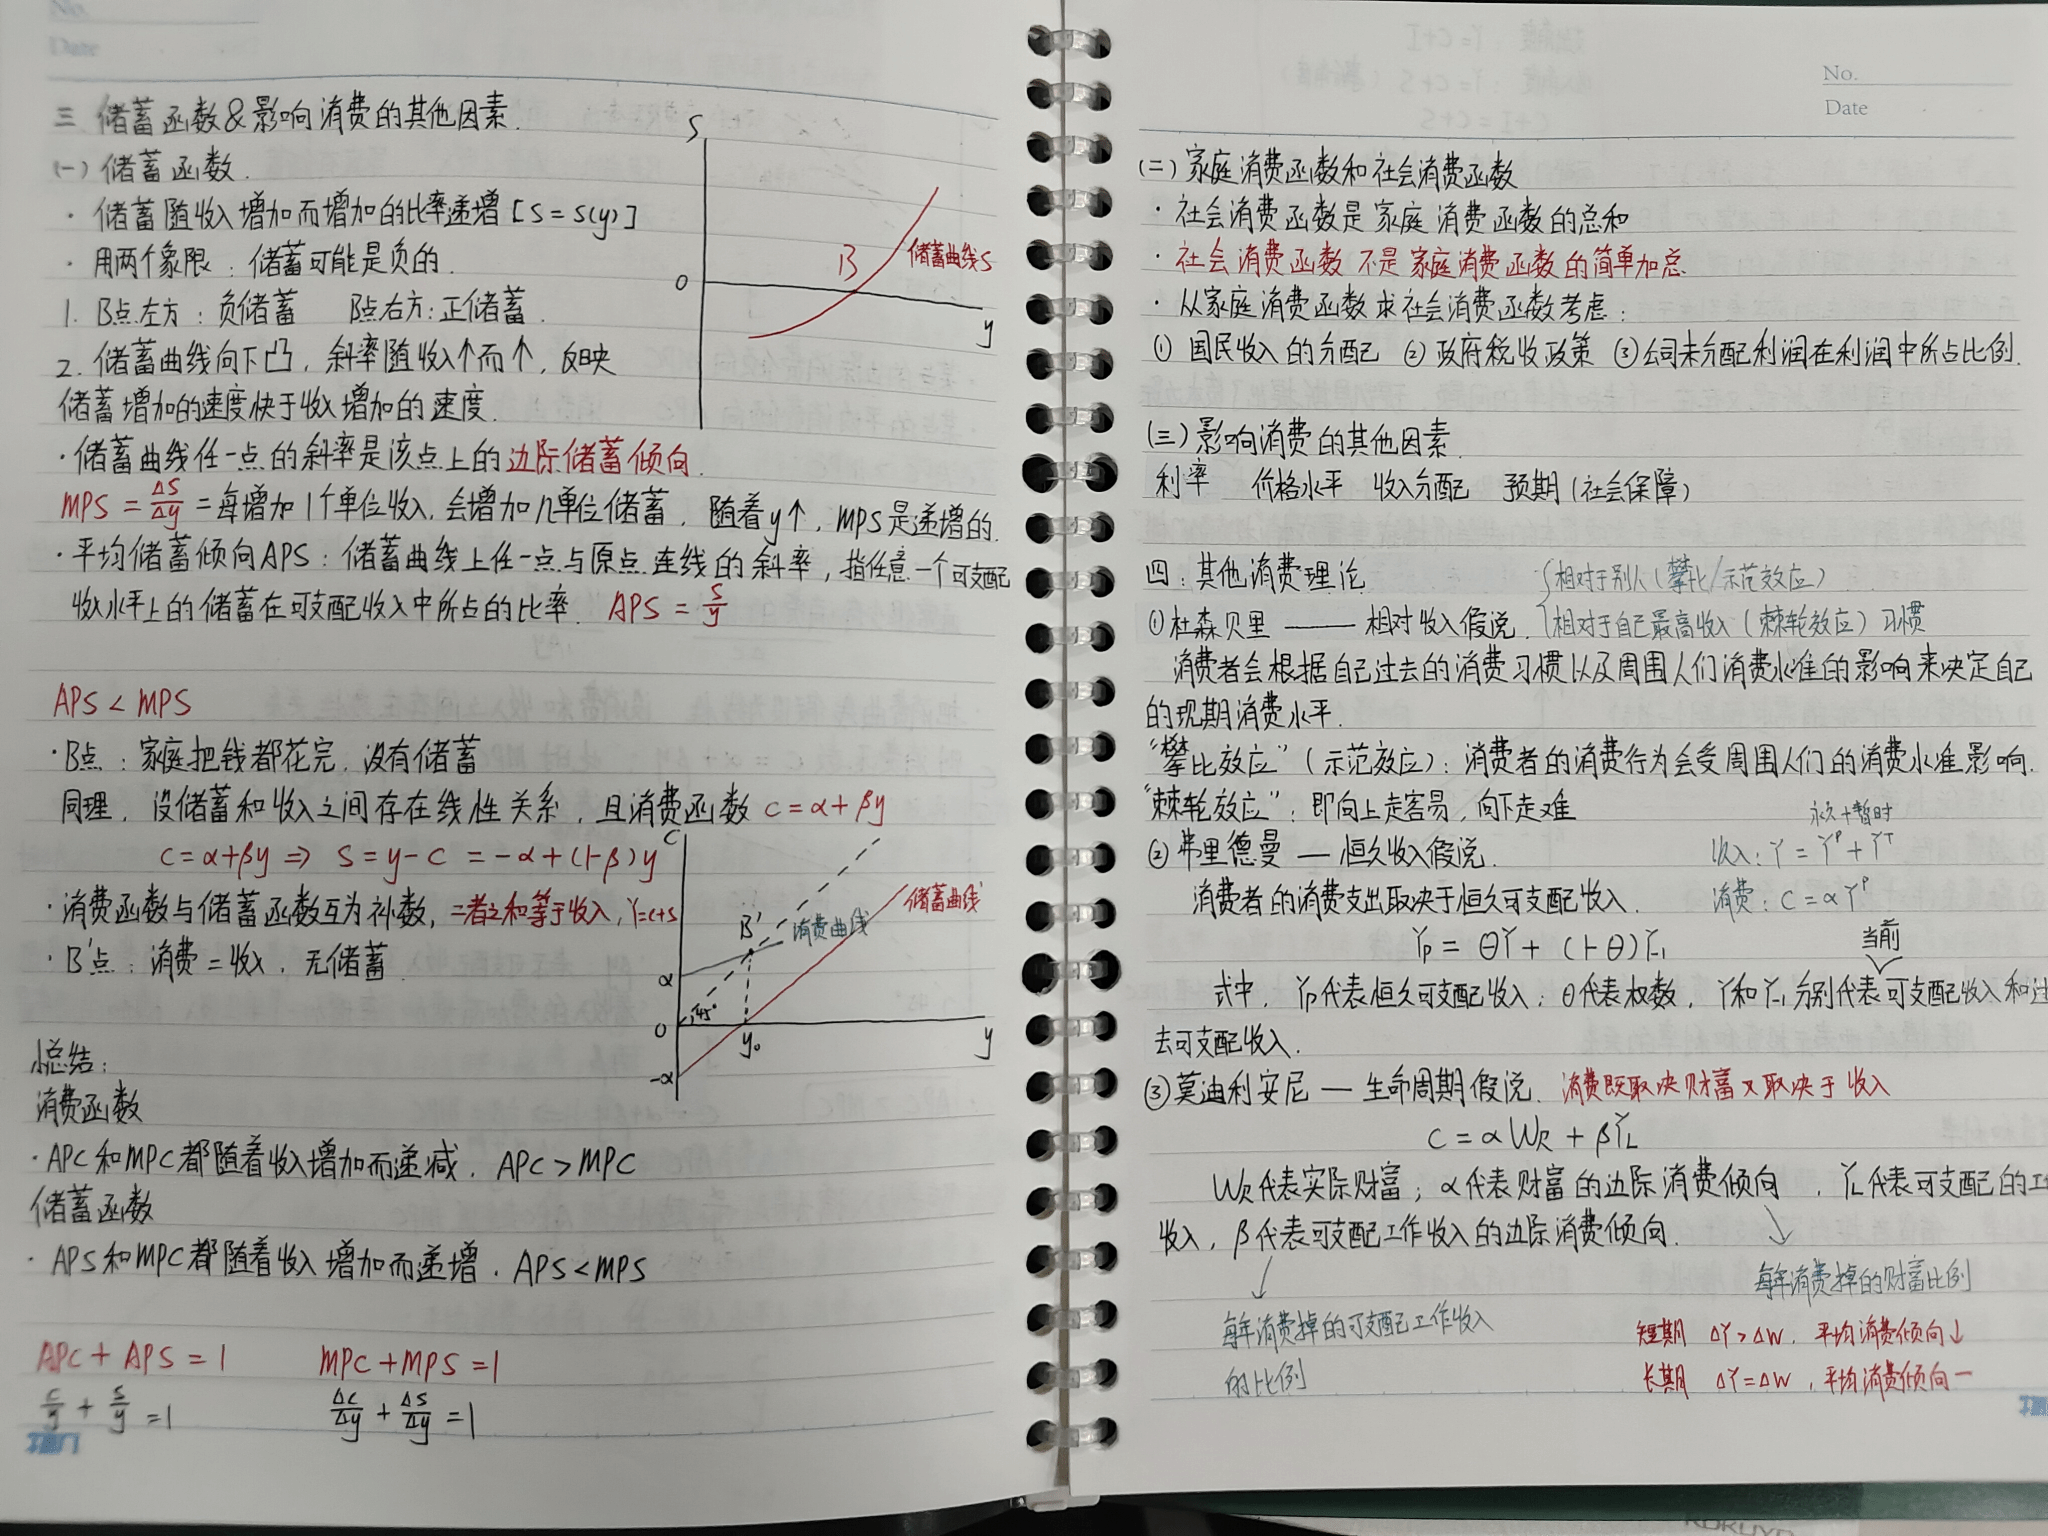 No.
Date
三. 储蓄函数&影响消费的其他因素.
(一) 储蓄函数.
· 储蓄随收入增加而增加的比率递增 [S = S(y)]
· 用两个象限:储蓄可能是负的.
1. B点左方:负储蓄 B点右方:正储蓄.
2. 储蓄曲线向下凸,斜率随收入↑而↑,反映
储蓄增加的速度快于收入增加的速度.
S
B
储蓄曲线S
0
y
· 储蓄曲线任一点的斜率是该点上的边际储蓄倾向.
MPS = ΔS/Δy = 每增加1个单位收入,会增加几单位储蓄. 随着y↑,MPS是递增的.
· 平均储蓄倾向APS:储蓄曲线上任一点与原点连线的斜率,指任意一个可支配
收入水平上的储蓄在可支配收入中所占的比率. APS = S/y
APS < MPS
· B点:家庭把钱都花完,没有储蓄
同理,设储蓄和收入之间存在线性关系,且消费函数 c = α + βy
c = α+βy ⇒ S = y-c = -α+(1-β)y
· 消费函数与储蓄函数互为补数,二者之和等于收入,Y=c+s
· B'点:消费=收入,无储蓄
C
储蓄曲线
B'
消费曲线
α
45°
0
y₀
y
-α
小总结:
消费函数
· APC和MPC都随着收入增加而递减. APC > MPC
储蓄函数
· APS和MPC都随着收入增加而递增. APS < MPS
APC + APS = 1 MPC + MPS = 1
c/y + s/y = 1 Δc/Δy + Δs/Δy = 1
No.
Date
(二) 家庭消费函数和社会消费函数
· 社会消费函数是家庭消费函数的总和
· 社会消费函数不是家庭消费函数的简单加总
· 从家庭消费函数求社会消费函数考虑:
① 国民收入的分配 ② 政府税收政策 ③ 公司未分配利润在利润中所占比例.
(三) 影响消费的其他因素.
利率 价格水平 收入分配 预期 (社会保障)
四. 其他消费理论
{相对于别人 (攀比/示范效应)
① 杜森贝里 —— 相对收入假说. 相对于自己最高收入 (棘轮效应) 习惯
消费者会根据自己过去的消费习惯以及周围人们消费水准的影响来决定自己
的现期消费水平.
“攀比效应” (示范效应):消费者的消费行为会受周围人们的消费水准影响.
“棘轮效应”:即向上走容易,向下走难
永久+暂时
② 弗里德曼 — 恒久收入假说. 收入:Y = Yᴾ + Yᵀ
消费者的消费支出取决于恒久可支配收入. 消费:C = αYᴾ
Yp = θY + (1-θ)Y₋₁
当前
式中,Yp代表恒久可支配收入;θ代表权数,Y和Y₋₁分别代表可支配收入和过
去可支配收入.
③ 莫迪利安尼 — 生命周期假说. 消费既取决财富又取决于收入
C = αWR + βYL
WR代表实际财富;α代表财富的边际消费倾向,YL代表可支配的工
收入,β代表可支配工作收入的边际消费倾向.
每年消费掉的财富比例
每年消费掉的可支配工作收入
的比例
短期 ΔY>ΔW. 平均消费倾向↓
长期 ΔY=ΔW,平均消费倾向一
KOKUYO